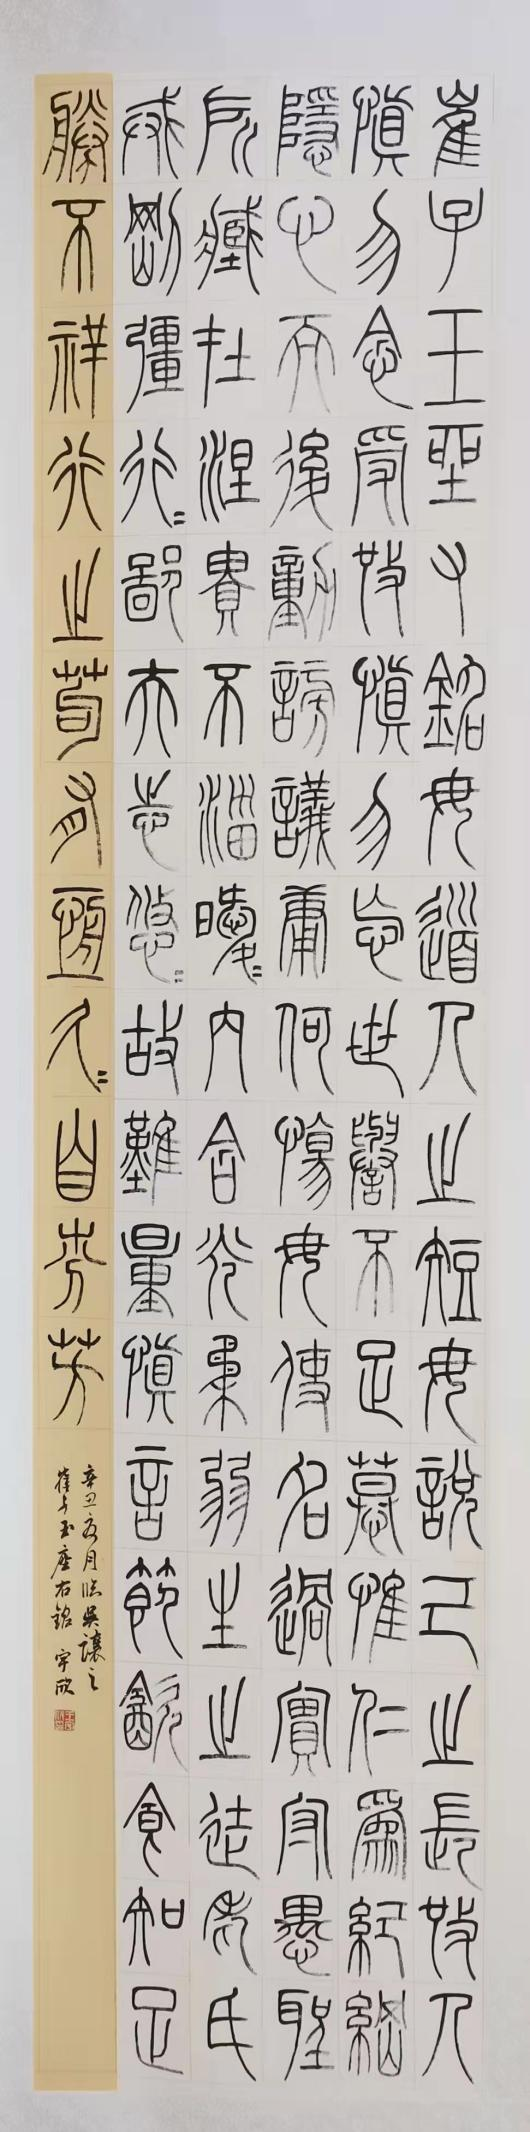 崔子玉坐右銘毋道人之短毋說己之長施人
慎勿念受施慎勿忘世譽不足慕惟仁爲紀綱
隱心而後動謗議庸何傷毋使名過實守愚聖
所臧在涅貴不淄曖〻內含光柔弱生之徒老氏
戒剛彊行〻鄙夫志悠〻故難量慎言節飲食知足
勝不祥行之苟有恆久〻自芬芳
辛丑夏月臨吳讓之
崔子玉座右銘 宇欣